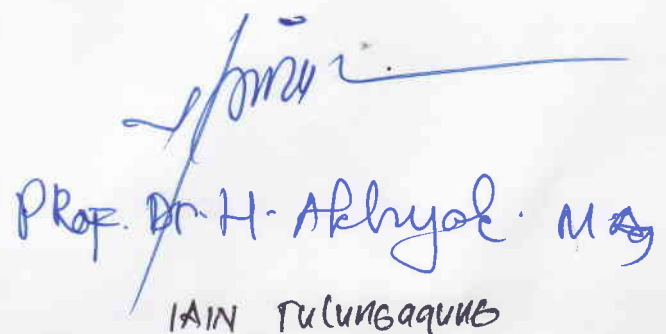 PROF. Dr. H. Akhyak. M Ag
IAIN TULUNGAGUNG